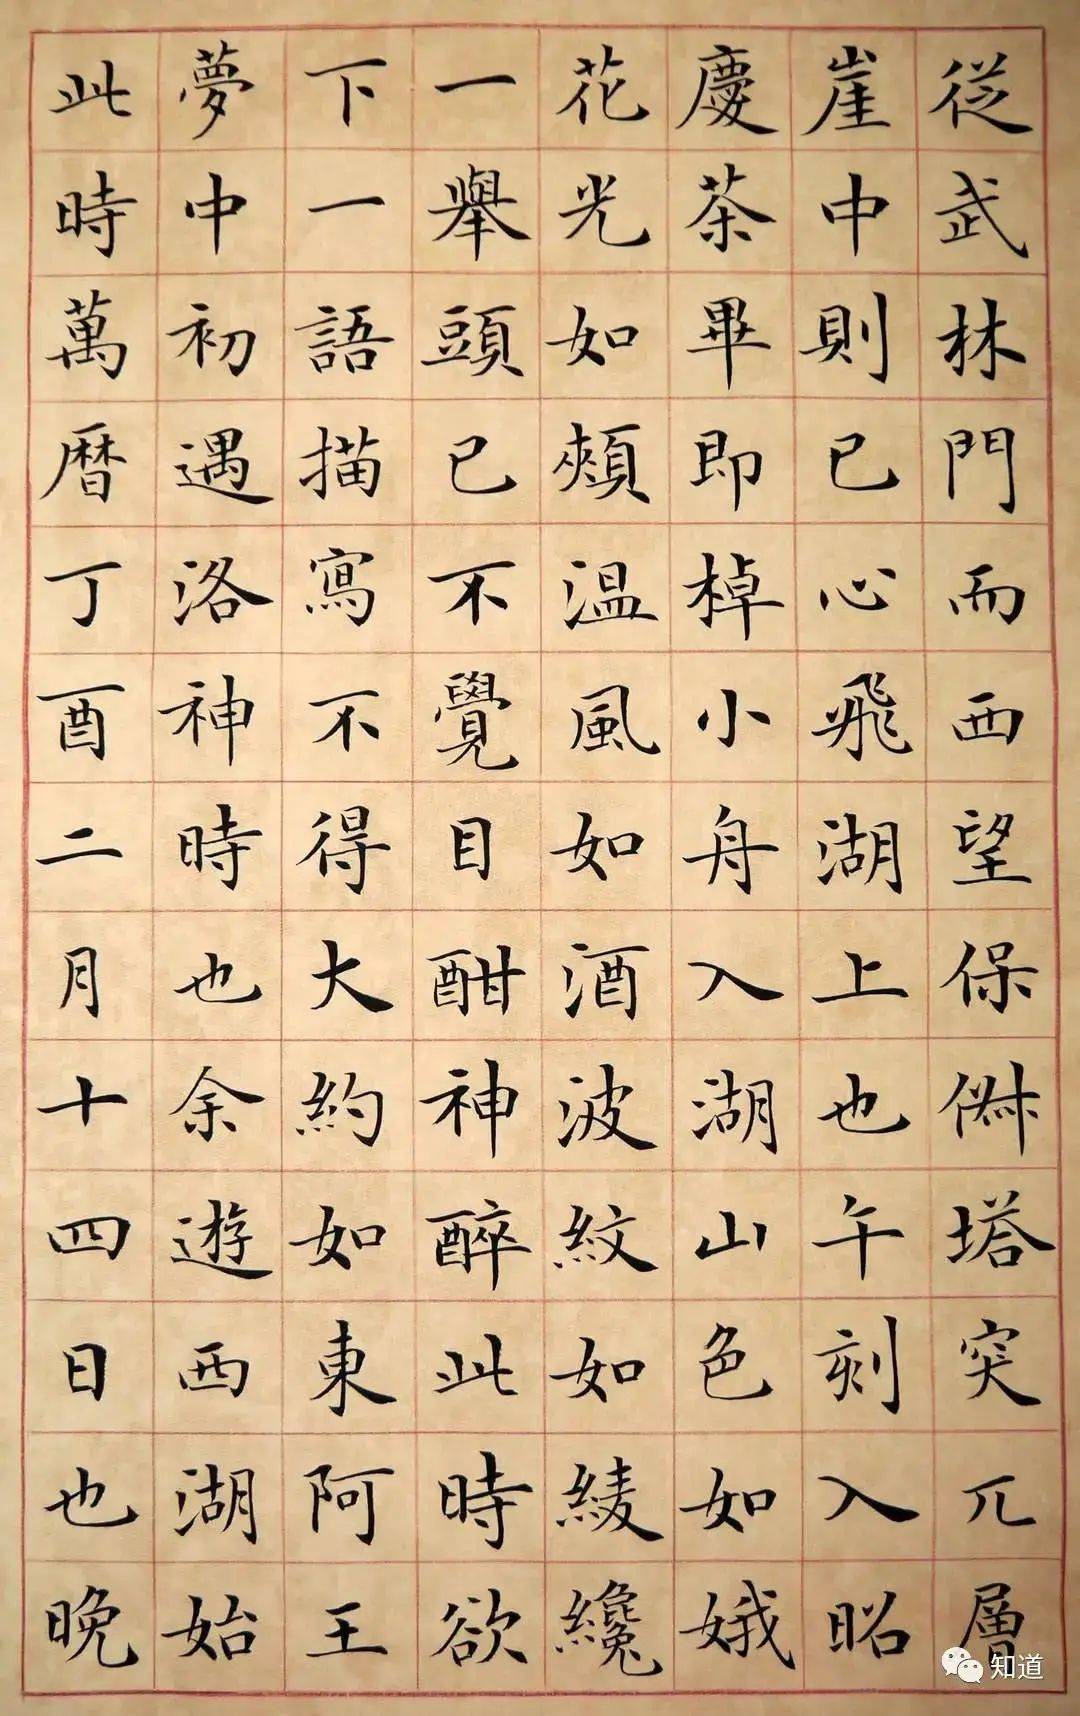 從武林門而西望保俶塔突兀層
崖中則已心飛湖上也午刻入昭
慶茶畢即棹小舟入湖山色如娥
花光如頰溫風如酒波紋如綾纔
一舉頭已不覺目酣神醉此時欲
下一語描寫不得大約如東阿王
夢中初遇洛神時也余遊西湖始
此時萬曆丁酉二月十四日也晚
知道